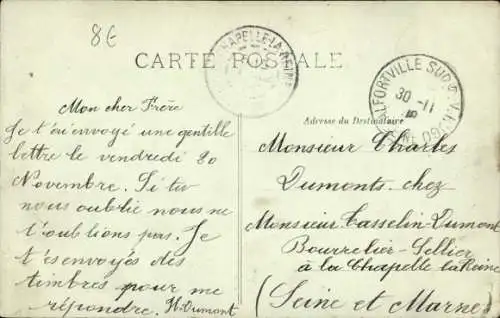 8€
CARTE POSTALE
CHAPELLE-LA-REINE
ALFORTVILLE SUD
30 -11
Adresse du Destinataire
Mon cher Frère
Je t'ai envoyé une gentille
lettre le vendredi 20
Novembre. Si tu
nous oublie nous ne
t'oublions pas. Je
t'és envoyés des
timbres pour me
répondre. H. Dumont
Monsieur Charles
Dumonts chez
Monsieur Tasselin-Dumont
Bourrelier-Sellier
à la Chapelle la Reine
(Seine et Marne)